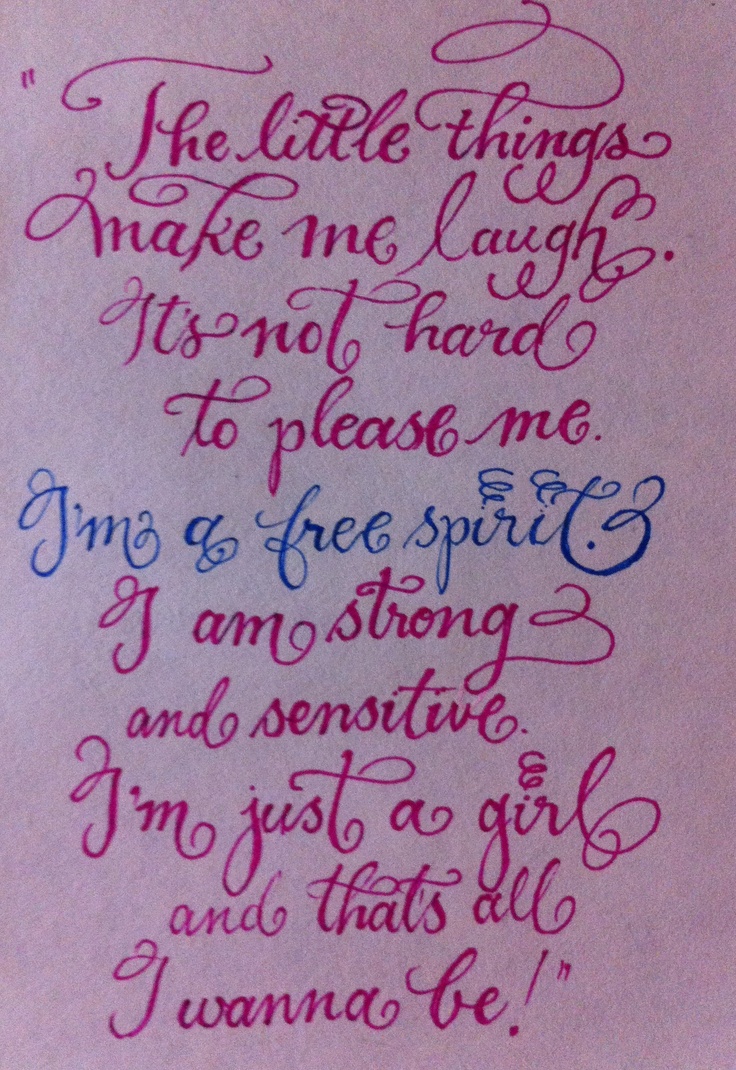 "The little things
make me laugh.
It's not hard
to please me.
I'm a free spirit.
I am strong
and sensitive.
I'm just a girl
and that's all
I wanna be!"